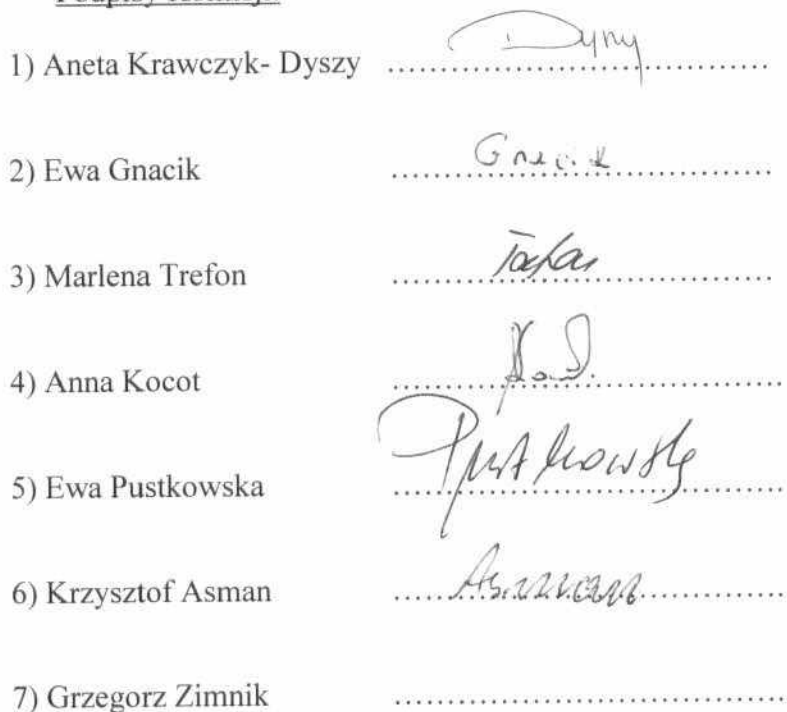 1) Aneta Krawczyk- Dyszy ....................................
2) Ewa Gnacik .................................... Gnacik
3) Marlena Trefon ....................................
4) Anna Kocot ....................................
5) Ewa Pustkowska .................................... Pustkowska
6) Krzysztof Asman .................................... Asman
7) Grzegorz Zimnik ....................................